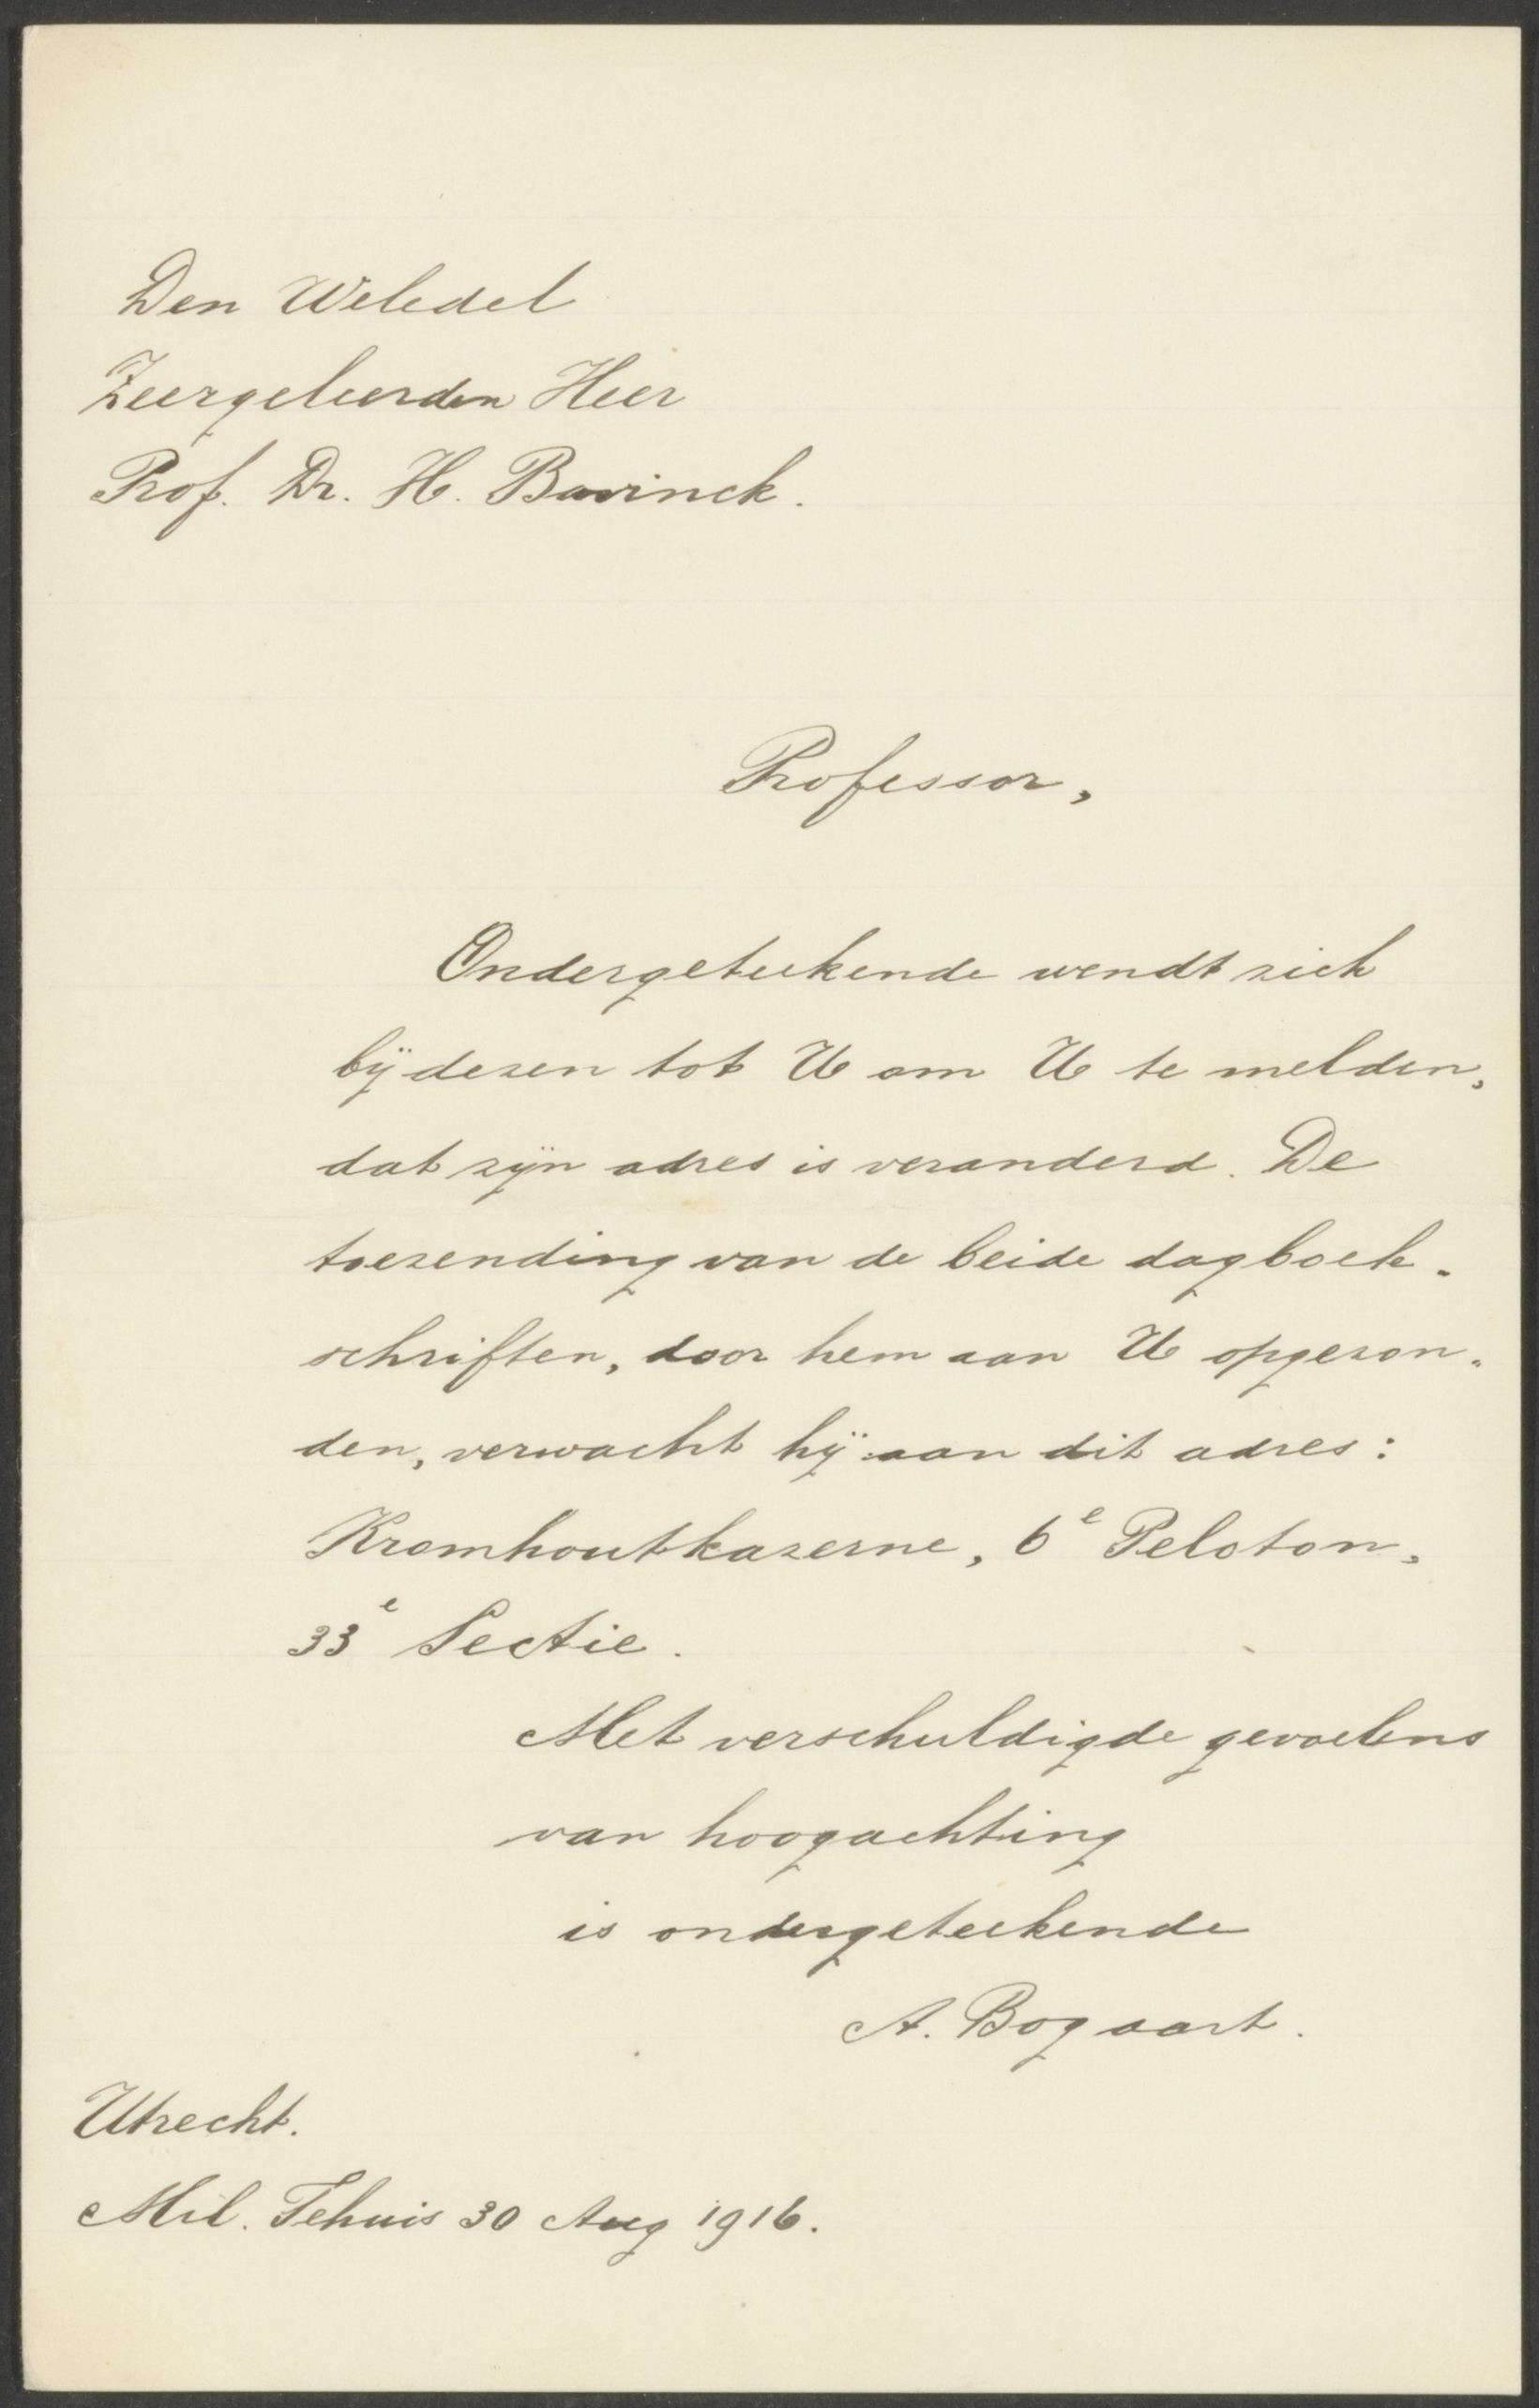 Den Weledel
Zeergeleerden Heer
Prof. Dr. H. Bavinck.
Professor,
Ondergeteekende wendt zich
bij dezen tot U om U te melden,
dat zijn adres is veranderd. De
toezending van de beide dagboek-
schriften, door hem aan U opgezon-
den, verwacht hij aan dit adres:
Kromhoutkazerne, 6e Peloton,
33e Sectie.
Met verschuldigde gevoelens
van hoogachting
is ondergeteekende
A. Bogaart.
Utrecht.
Mil. Tehuis 30 Aug 1916.